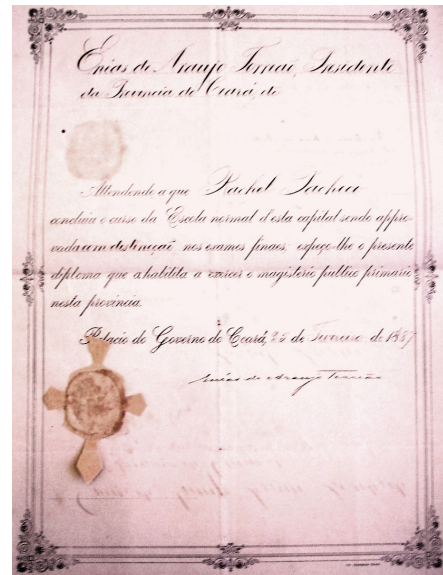 Enéas de Araujo Torreão, Presidente
da Provincia do Ceará, &
Attendendo a que Rachel Pacheco
concluiu o curso da Escola normal d'esta capital sendo appro-
vada com distincção, nos exames finaes, expeço-lhe o presente
diploma que a habilita a exercer o magisterio publico primario
nesta provincia.
Palacio do Governo do Ceará, 25 de Fevereiro de 1887
Enéas de Araujo Torreão